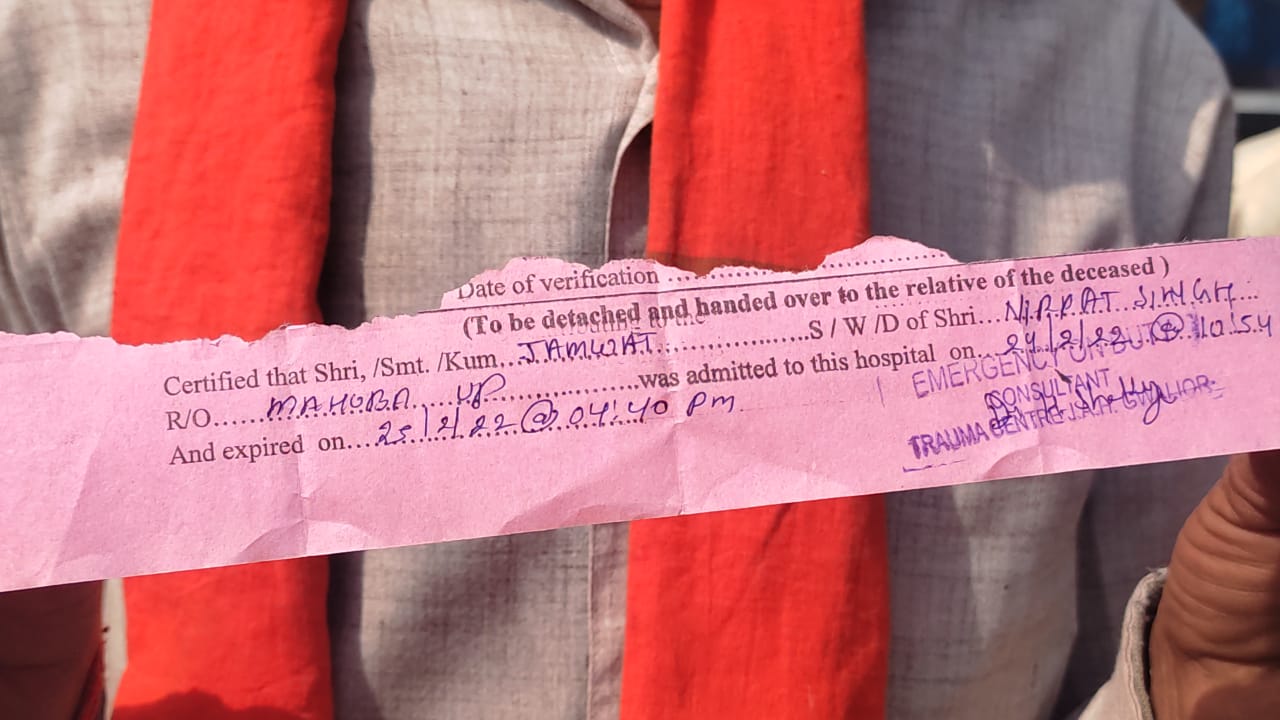 Date of verification ......................................................
(To be detached and handed over to the relative of the deceased )
Certified that Shri, /Smt. /Kum...JAMWAT..............................S / W /D of Shri...NIRPAT SINGH...
R/O......MAHOBA UP......................was admitted to this hospital on...24/2/22 @ 10:54
And expired on...25/2/22 @ 04:40 pm
EMERGENCY
CONSULTANT
TRAUMA CENTRE J.A.H. GWALIOR